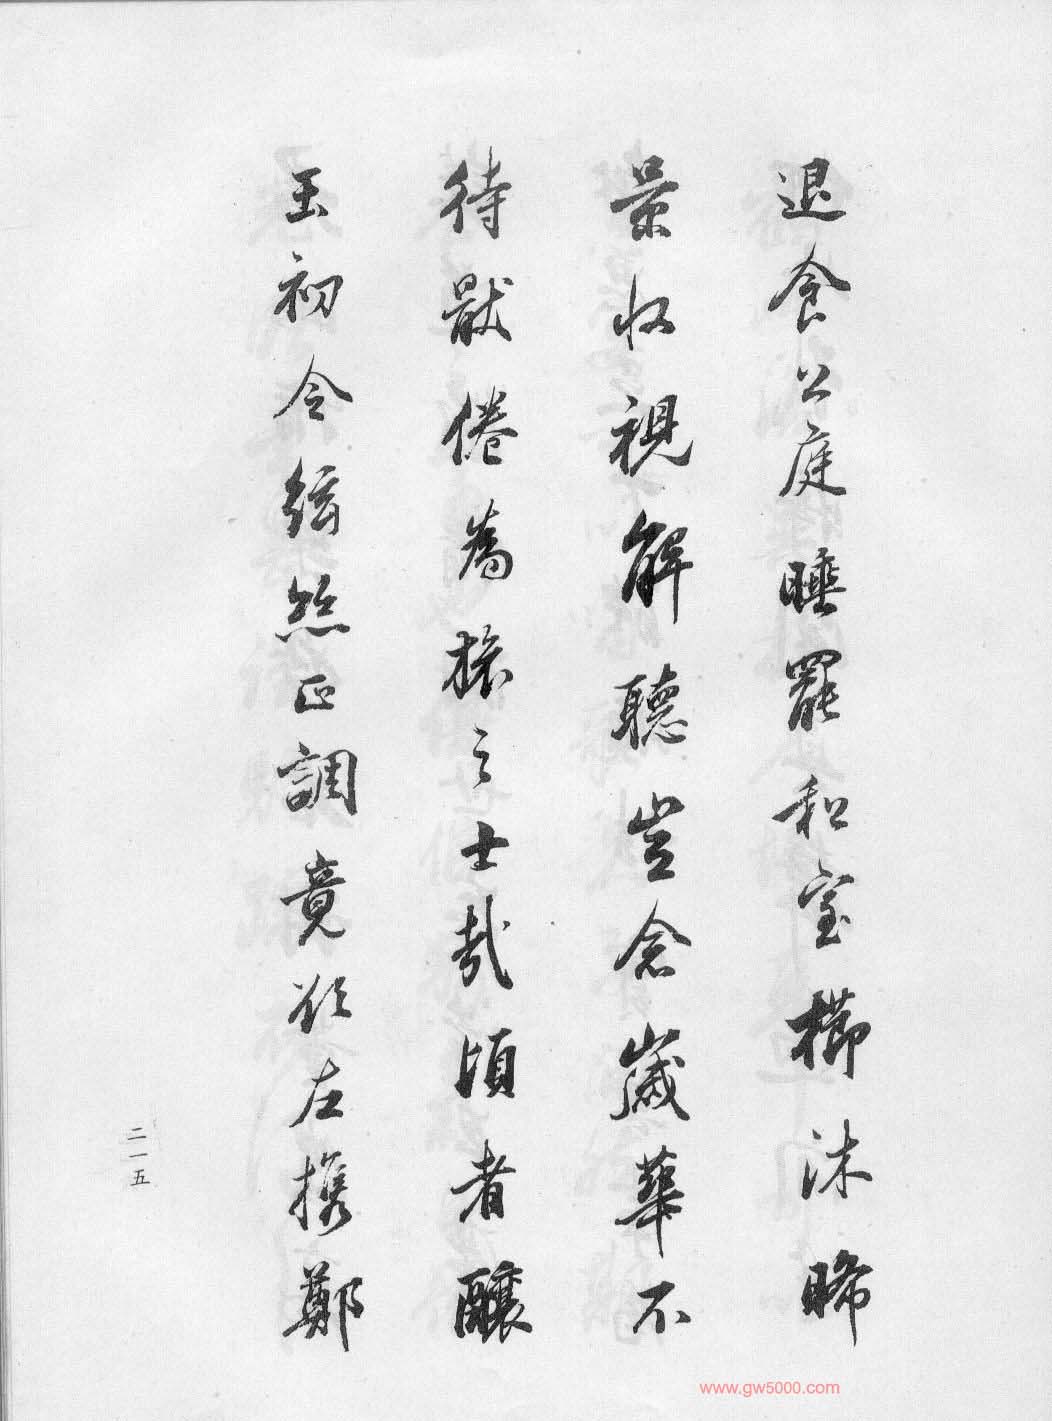 退食公庭睡罷和室櫛沐晞
景收視解聽豈念歲華不
待猒倦為樣之士哉頃者釀
玉初令絃絲正調竟欲左携鄭
二一五
www.gw5000.com